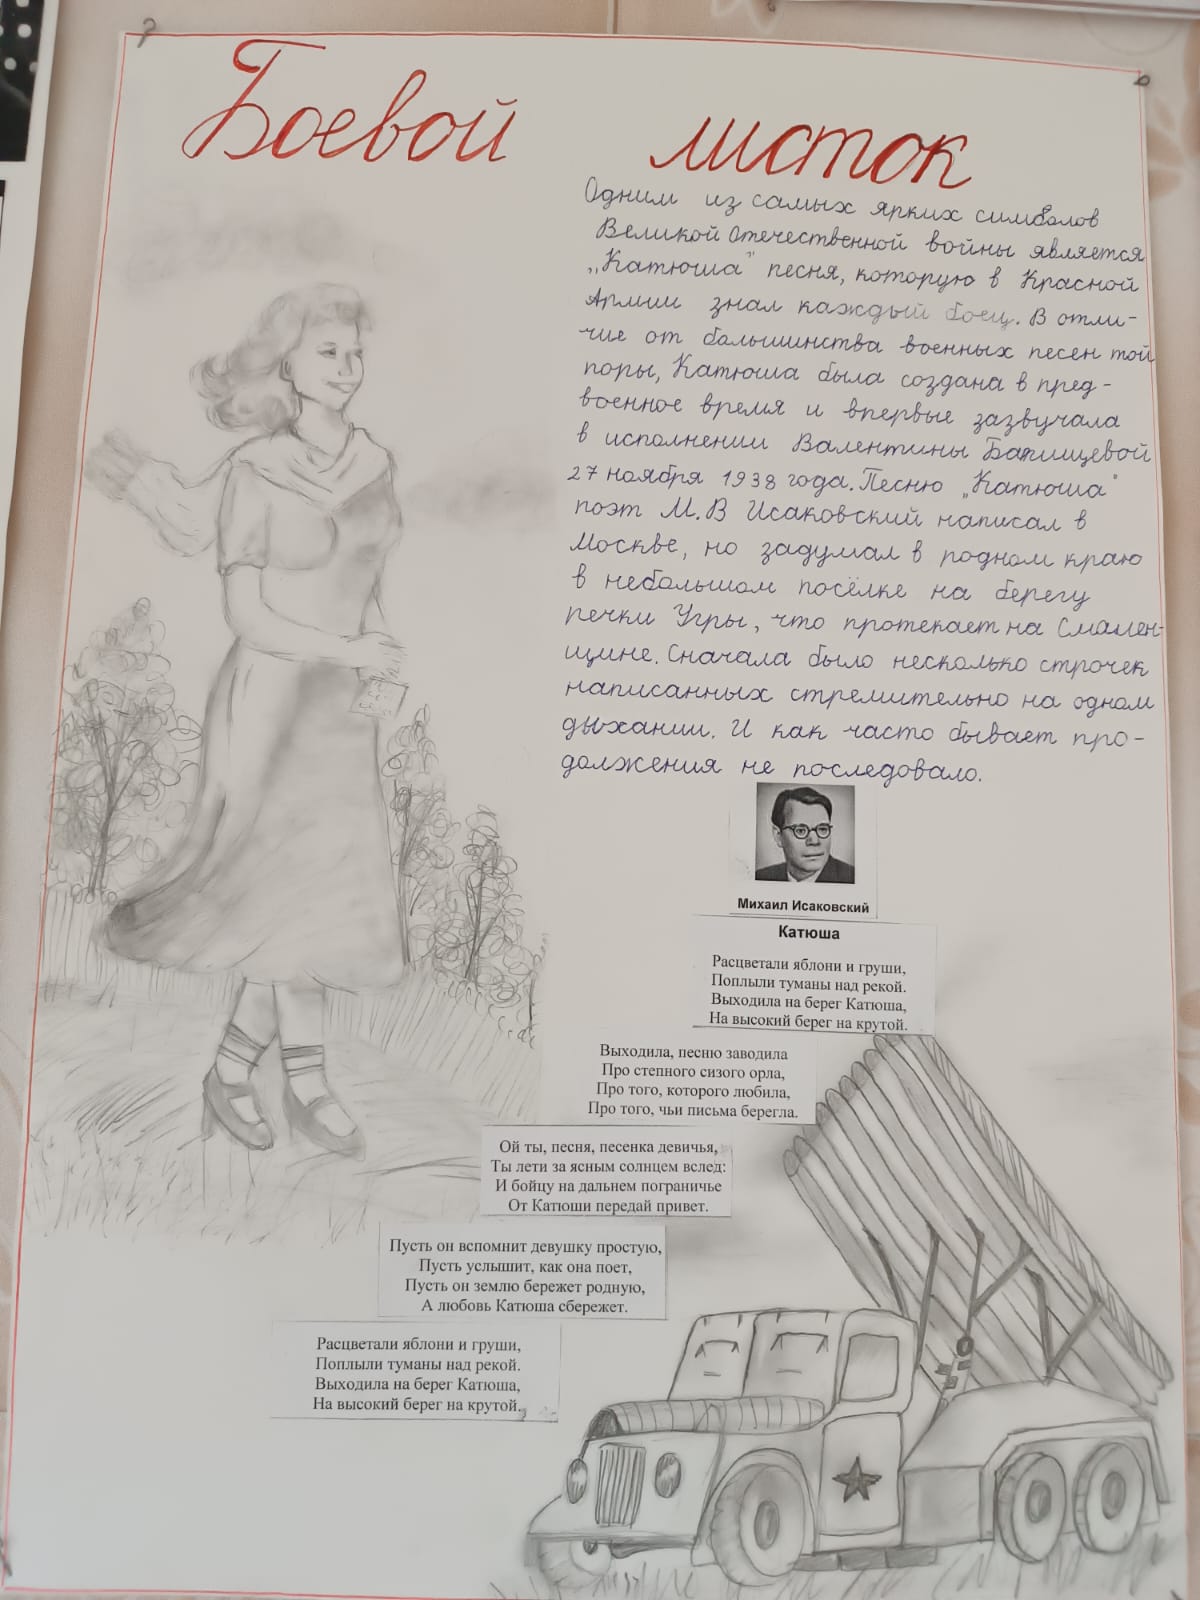 Боевой листок
Одним из самых ярких символов
Великой Отечественной войны является
„Катюша" песня, которую в Красной
Армии знал каждый боец. В отли-
чие от большинства военных песен той
поры, Катюша была создана в пред-
военное время и впервые зазвучала
в исполнении Валентины Батищевой
27 ноября 1938 года. Песню „Катюша"
поэт М.В Исаковский написал в
Москве, но задумал в родном краю
в небольшом посёлке на берегу
речки Угры, что протекает на Смолен-
щине. Сначала было несколько строчек
написанных стремительно на одном
дыхании. И как часто бывает про-
должения не последовало.
Михаил Исаковский
Катюша
Расцветали яблони и груши,
Поплыли туманы над рекой.
Выходила на берег Катюша,
На высокий берег на крутой.
Выходила, песню заводила
Про степного сизого орла,
Про того, которого любила,
Про того, чьи письма берегла.
Ой ты, песня, песенка девичья,
Ты лети за ясным солнцем вслед:
И бойцу на дальнем пограничье
От Катюши передай привет.
Пусть он вспомнит девушку простую,
Пусть услышит, как она поет,
Пусть он землю бережет родную,
А любовь Катюша сбережет.
Расцветали яблони и груши,
Поплыли туманы над рекой.
Выходила на берег Катюша,
На высокий берег на крутой.